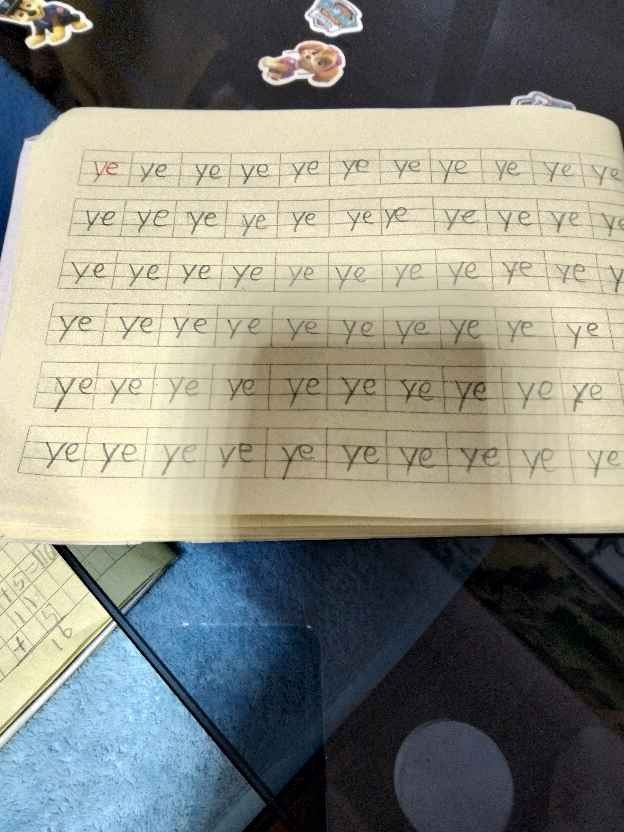 ye ye ye ye ye ye ye ye ye ye ye
ye ye ye ye ye ye ye ye ye ye ye
ye ye ye ye ye ye ye ye ye ye y
ye ye ye ye ye ye ye ye ye ye
ye ye ye ye ye ye ye ye ye ye
ye ye ye ye ye ye ye ye ye ye
11
+ 5
16